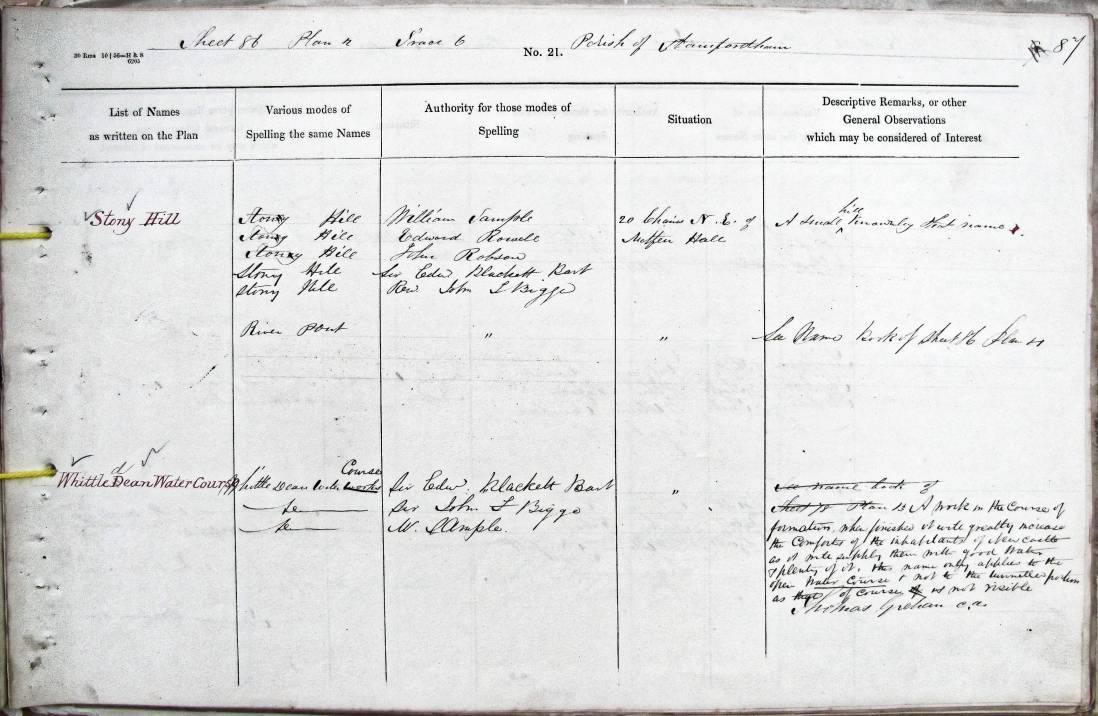 Sheet 86 Plan 11 Trace 6 No. 21. Parish of Stamfordham 87
List of Names as written on the Plan
Various modes of Spelling the same Names
Authority for those modes of Spelling
Situation
Descriptive Remarks, or other General Observations which may be considered of Interest
Stony Hill
Stony Hill William Sample 20 Chains N.E. of A small hill known by that name.
Stony Hill Edward Rowell Matfen Hall
Stony Hill John Robson
Stony Hill Sir Edw Blackett Bart
Stony Hill Rev John L Bigge
River Pont " " See Name Book of Sheet 86 Plan
Whittle Dean Water Course
Whittle Dean Water Works Course Sir Edw. Blackett Bart " See name book of
Sir John L Bigge Sheet Plan 13 A work in the Course of
W. Sample. formation, when finished it will greatly increase
the Comforts of the inhabitants of Newcastle
as it will supply them with good Water
& plenty of it. this name only applies to the
open Water Course & not to the tunnelled portion
as that of course is not visible
Thomas